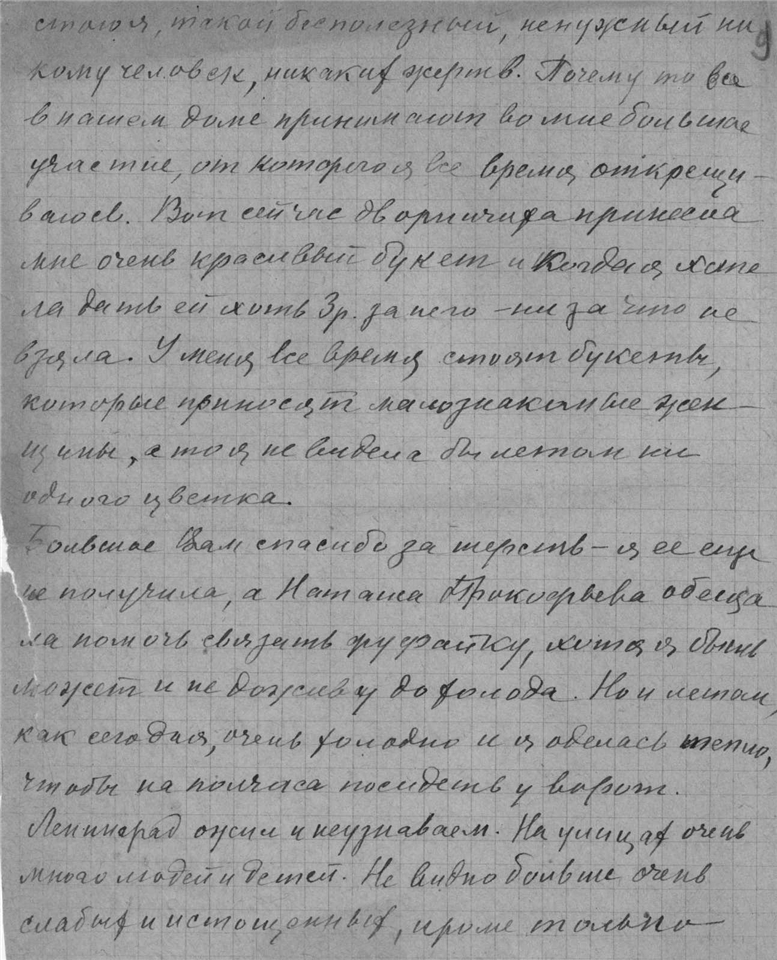 стоюя, такой бесполезный, ненужный ни
9
кому человек, никаких жертв. Почему то все
в нашем доме принимают во мне большое
участие, от которого я все время открещи-
ваюсь. Вот сейчас дворничиха принесла
мне очень красивый букет и когда я хоте
ла дать ей хоть 3р. за него - ни за что не
взяла. У меня все время стоят букеты,
которые приносят малознакомые жен-
щины, а то я не видела бы летом ни
одного цветка.
Большое Вам спасибо за шерсть - я ее еще
не получила, а Наташа Прокофьева обеща
ла помочь связать фуфайку, хотя я быть
может и не доживу до холода. Но и летом,
как сегодня, очень холодно и я оделась тепло,
чтобы на полчаса посидеть у ворот.
Ленинград ожил и неузнаваем. На улицах очень
много людей и детей. Не видно больше очень
слабых и истощенных, кроме только